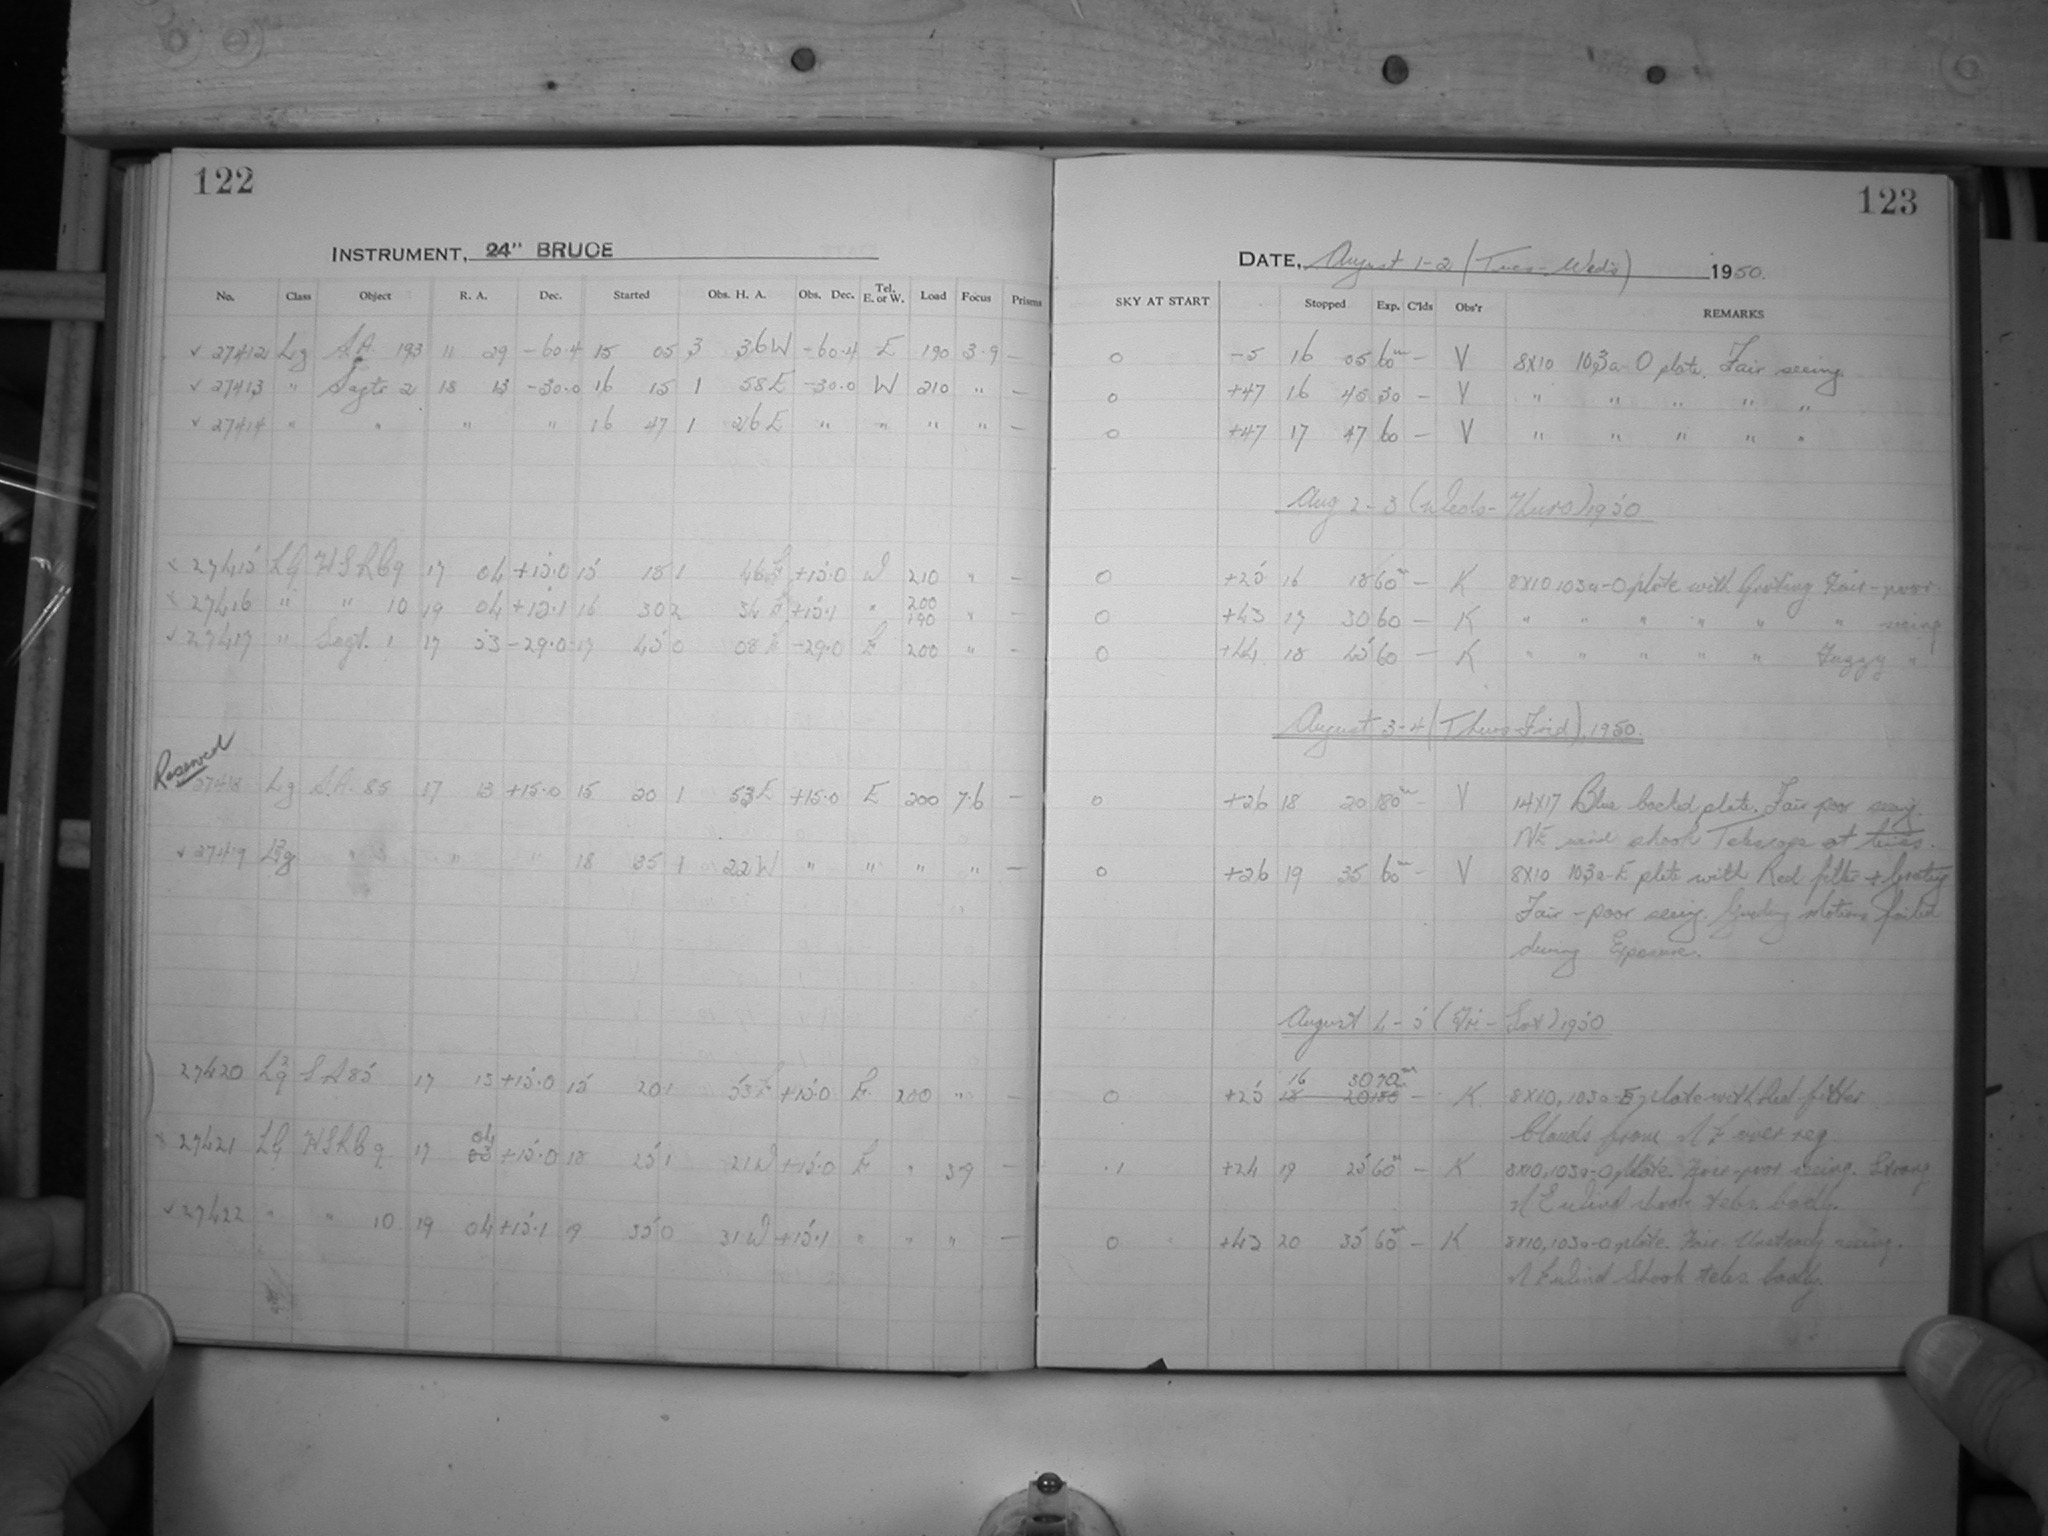 122
INSTRUMENT, 24" BRUCE
No. Class Object R. A. Dec. Started Obs. H. A. Obs. Dec. Tel. E. or W. Load Focus Prisms
✓ 27412 Lg S.A. 193 11 29 -60.4 15 05 3 36W -60.4 E 190 3.9 —
✓ 27413 " Sagtr 2 18 13 -30.0 16 15 1 58E -30.0 W 210 " —
✓ 27414 " " " " 16 47 1 26E " " " " —
27415 LG HSLB 9 17 04 +15.0 15 18 1 46E +15.0 W 210 " —
27416 " " 10 19 04 +15.1 16 30 2 34E +15.1 " 200 190 " —
✓ 27417 " Sagt. 1 17 53 -29.0 17 45 0 08E -29.0 E 200 " —
Reserved
27418 Lg S.A. 85 17 13 +15.0 15 20 1 53E +15.0 E 200 7.6 —
✓ 27419 " " " 18 35 1 22W " " " " —
27420 SA 85 17 13 +15.0 15 20 1 53E +15.0 E 200 " —
27421 LG 9 17 04 +15.0 18 25 1 21W +15.0 E " 3.9 —
✓ 27422 " " 10 19 04 +15.1 19 35 0 31W +15.1 " " " —
123
DATE, August 1-2 (Tues-Weds) 1950.
SKY AT START Stopped Exp. C'lds Obs'r REMARKS
0 -5 16 05 60m — V 8x10 103a-O plate. Fair seeing
0 +47 16 45 30 — V " " " " "
0 +47 17 47 60 — V " " " " "
Aug 2-3 (Weds-Thurs) 1950
0 +25 16 18 60m — K 8x10 103a-O plate with Grating Fair-poor
0 +43 17 30 60 — K " " " " " " seeing
0 +44 18 45 60 — K " " " " " Fuzzy "
August 3-4 (Thurs-Frid), 1950.
0 +26 18 20 180m — V 14x17 Blue backed plate. Fair poor seeing.
NE wind shook Telescope at times.
0 +26 19 35 60m — V 8x10 103a-E plate with Red filter + Grating
Fair-poor seeing. Guiding motions failed
during Exposure.
August 4-5 (Fri-Sat) 1950
16 30 70m
0 +25 18 20 180 — K 8x10, 103a-E plate with Red filter
Clouds from NE over reg.
.1 +24 19 25 60m — K 8x10, 103a-O plate. Fair-poor seeing. Strong
NE wind shook teles. body.
0 +43 20 35 60m — K 8x10, 103a-O plate. Fair-Unsteady seeing.
NE wind shook teles. body.